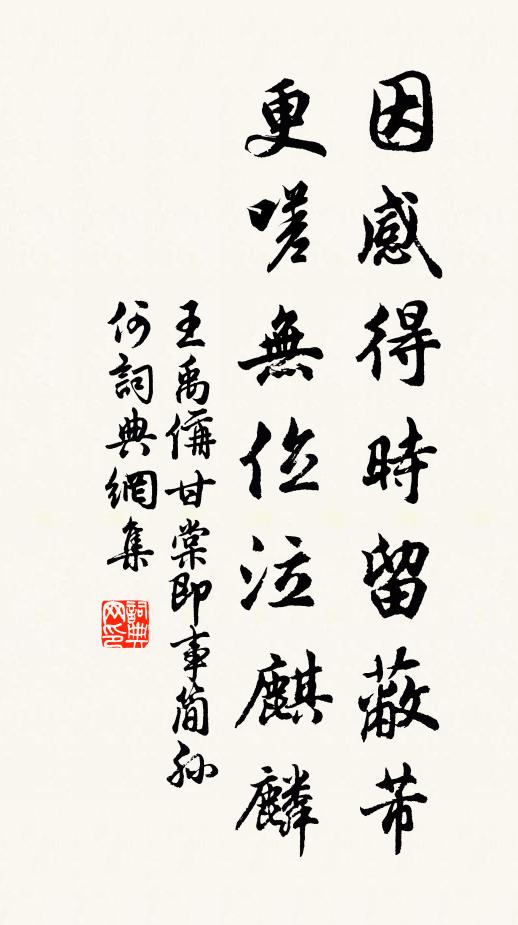 因感得時留蔽芾
更嗟無位泣麒麟
王禹偁甘棠即事简孙
何詞典網集
詞典
网印